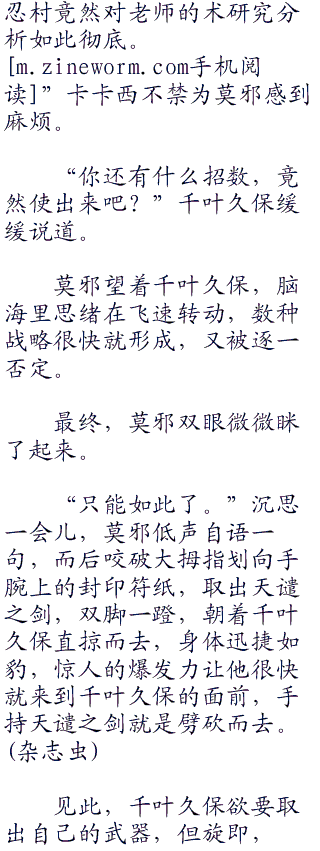 忍村竟然对老师的术研究分
析如此彻底。
[m.zineworm.com手机阅
读]”卡卡西不禁为莫邪感到
麻烦。
“你还有什么招数，竟
然使出来吧？”千叶久保缓
缓说道。
莫邪望着千叶久保，脑
海里思绪在飞速转动，数种
战略很快就形成，又被逐一
否定。
最终，莫邪双眼微微眯
了起来。
“只能如此了。”沉思
一会儿，莫邪低声自语一
句，而后咬破大拇指划向手
腕上的封印符纸，取出天谴
之剑，双脚一蹬，朝着千叶
久保直掠而去，身体迅捷如
豹，惊人的爆发力让他很快
就来到千叶久保的面前，手
持天谴之剑就是劈砍而去。
(杂志虫)
见此，千叶久保欲要取
出自己的武器，但旋即，